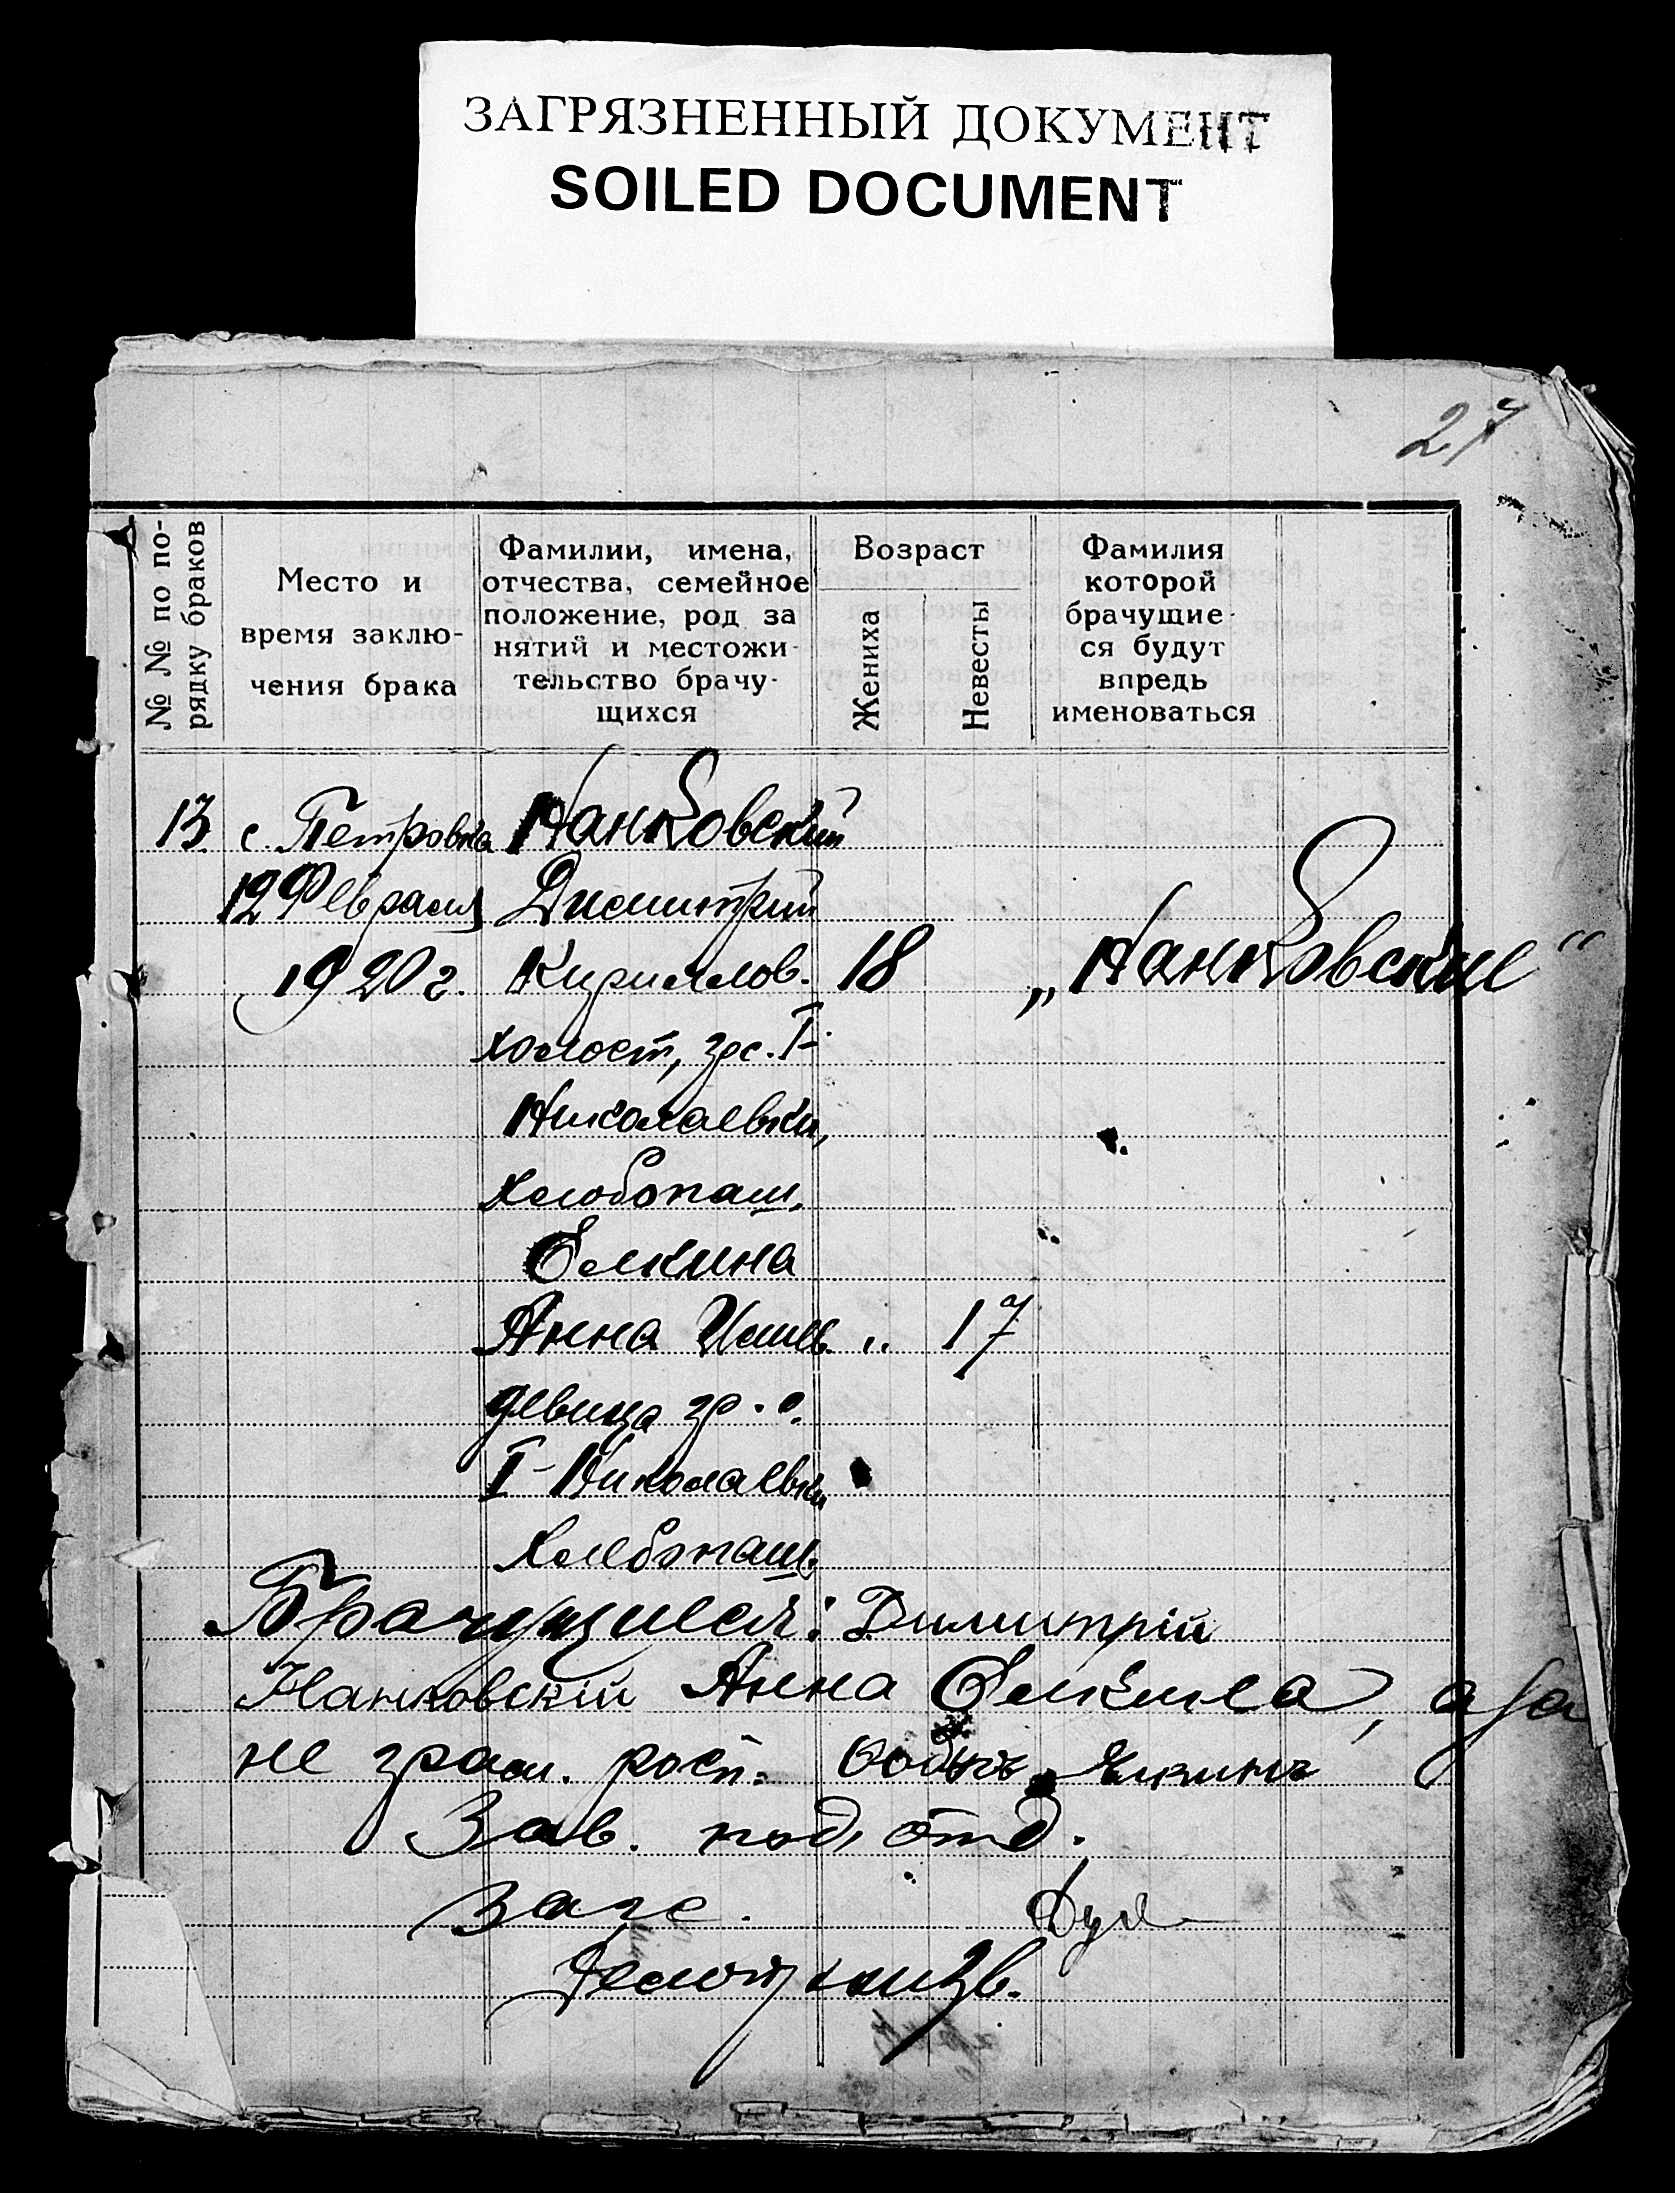 ЗАГРЯЗНЕННЫЙ ДОКУМЕНТ
SOILED DOCUMENT
27
№ № по по-
рядку браков
Место и
время заклю-
чения брака
Фамилии, имена,
отчества, семейное
положение, род за
нятий и местожи-
тельство брачу-
щихся
Возраст
Жениха
Невесты
Фамилия
которой
брачущие-
ся будут
впредь
именоваться
13 с. Петровка Нанковский
12 Февраля Димитрий
1920 г. Кириллов. 18 „Нанковские"
холост, гр. с. I-
Николаевки,
Хлебопаш.
Елкина
Анна 17
девица гр. с.
I-Николаевки
Хлебопаш.
Брачущиеся: Димитрій
Нанковскій Анна Елкина, а за
не грам. росп. Елкинъ
Зав. под. отд.
Загс.